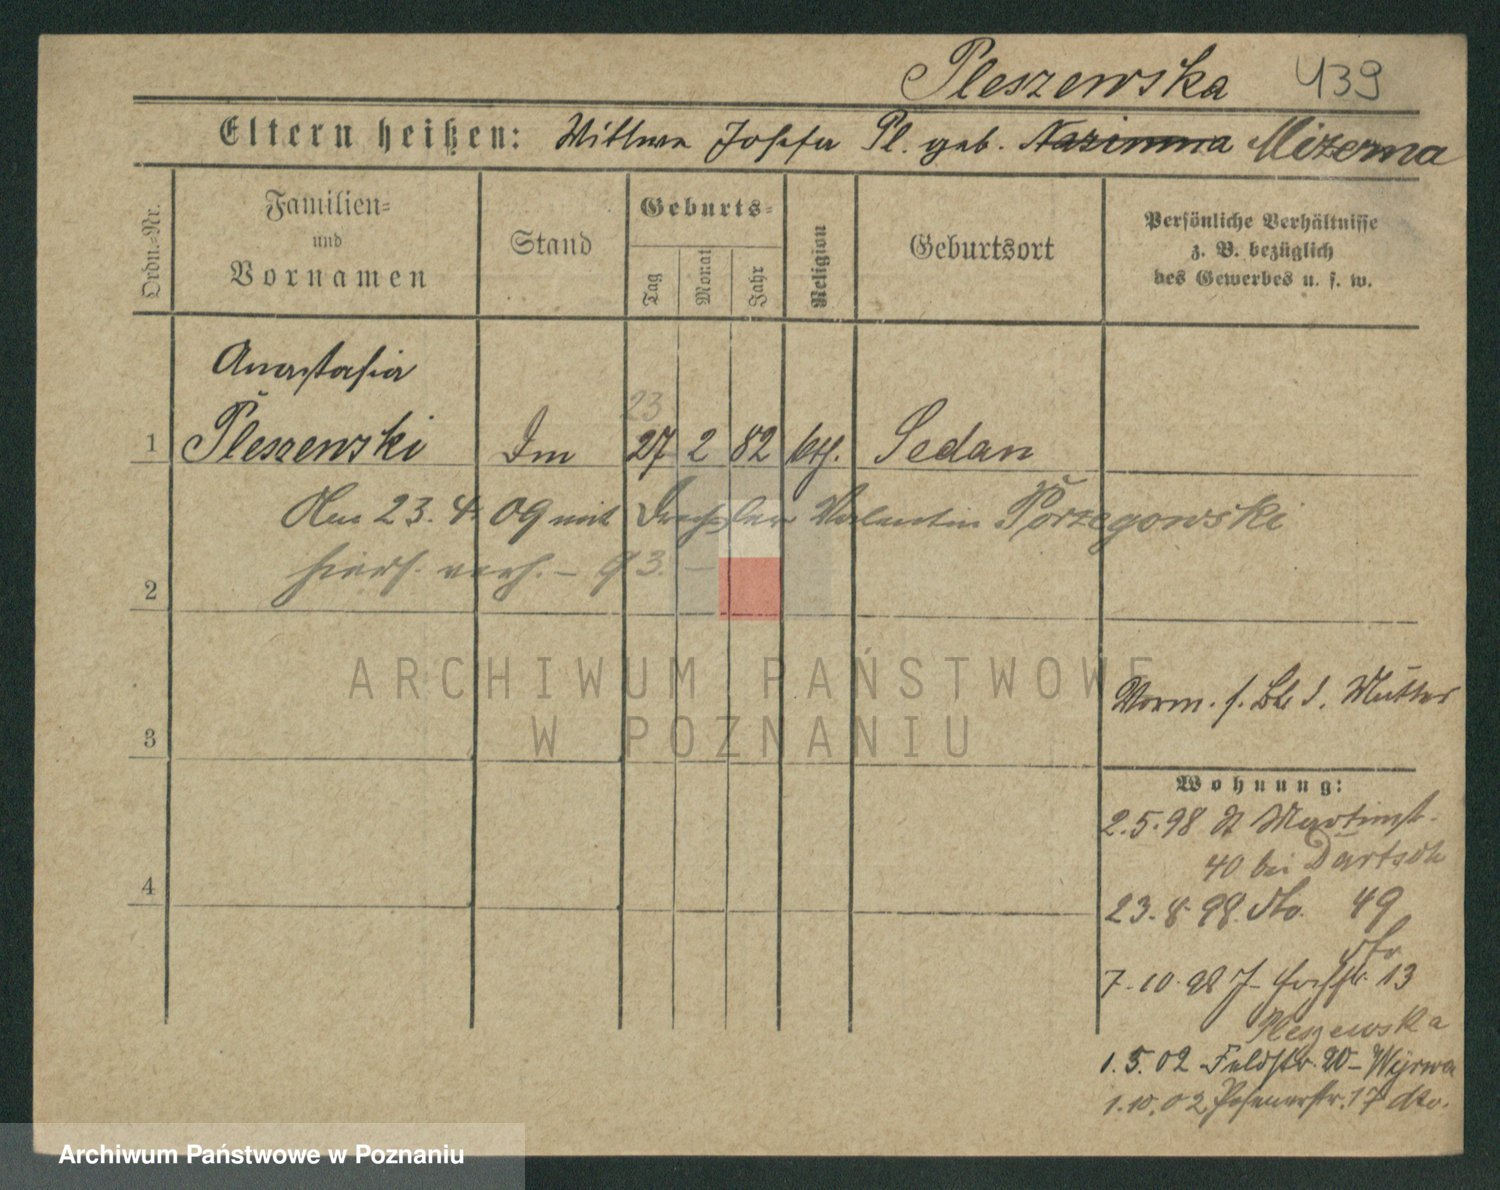 Pleszewska 439
Eltern heißen: Wittwe Josefa Pl. geb. Mizerna
Ordn.-Nr.
Familien-
und
Vornamen
Stand
Geburts-
Tag
Monat
Jahr
Religion
Geburtsort
Persönliche Verhältnisse
z. B. bezüglich
des Gewerbes u. s. w.
Anastasia
23
1 Pleszewski 27 2 82 kth. Sedan
Am 23. 4. 09 mit Valentin Porzegowski
2 93. –
ARCHIWUM PAŃSTWOWE
W POZNANIU
3 Vorm. s. d. Mutter
Wohnung:
2.5.98 St Martinst.
40 bei Bartsch
4
23.8.98 dto. 49
dto
7.10.98 13
Pleszewska
1.5.02 Feldstr. Wyrwa
1.10.02 Posenerstr. 17 dto.
Archiwum Państwowe w Poznaniu